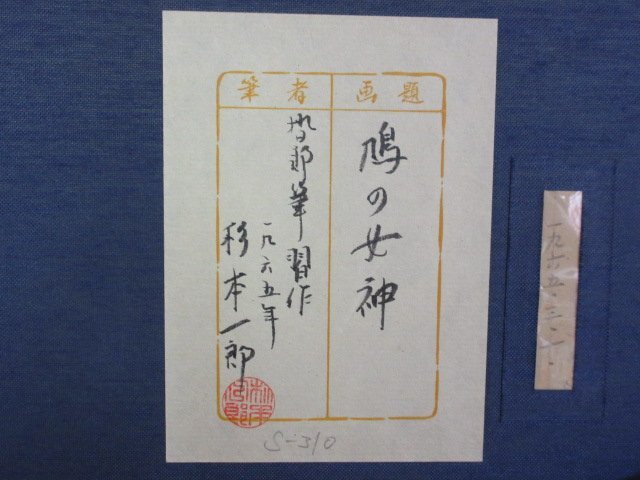 画題
筆者
鳩の女神
郎筆 習作
一九六五年
杉本一郎
S-310
一九六五・三・一・